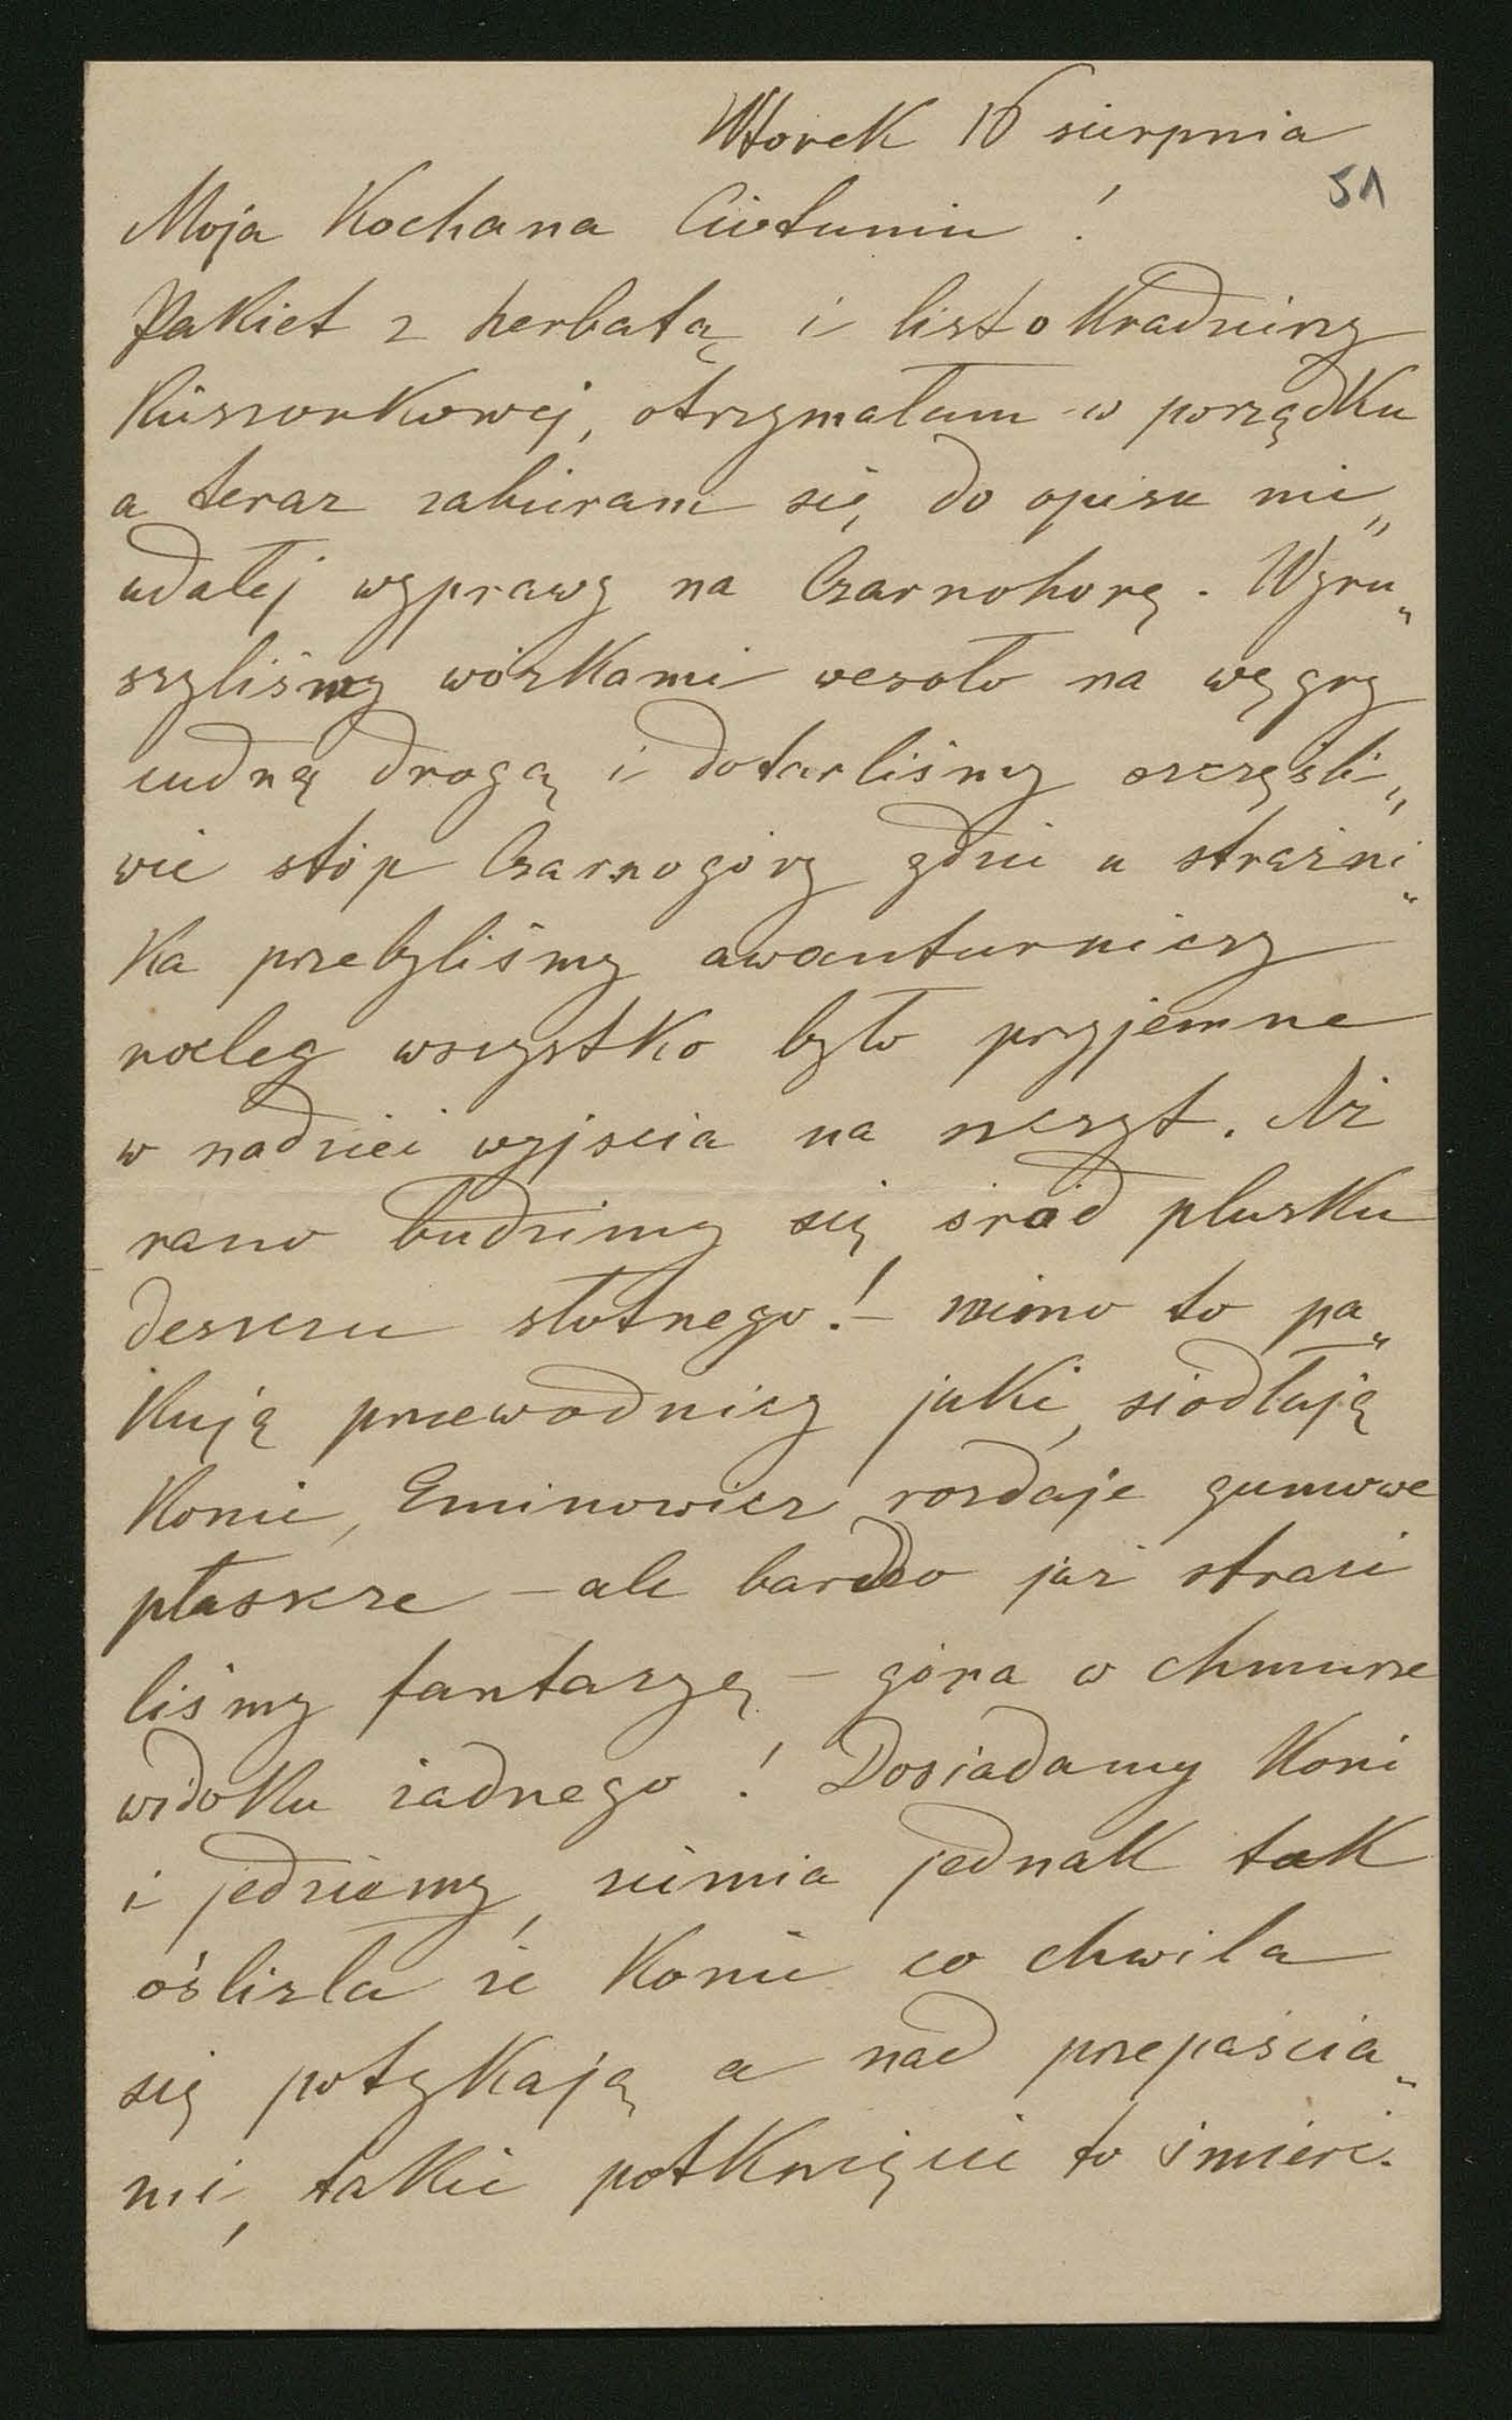 Wtorek 16 sierpnia
51
Moja Kochana Ciotuniu !
Pakiet z herbatą i list o Kradzieży
Kieszonkowej, otrzymałam w porządku
a teraz zabieram się do opisu nie„
udałej wyprawy na Czarnohorę. Wyru„
szyliśmy wózkami wesoło na węgry
cudną drogą i dotarliśmy szczęśli„
wie stóp Czarnogóry gdzie u strażni„
ka przebyliśmy awanturniczy
nocleg wszystko było przyjemne
w nadziei wyjścia na szczyt. Aż
rano budzimy się śród plusku
deszczu słotnego! – mimo to pa„
kują przewodnicy juki, siodłają
konie, Eminowicz rozdaje gumowe
płaszcze – ale bardzo już straci
liśmy fantazyę – góra w chmurze
widoku żadnego ! Dosiadamy koni
i jedziemy, ziemia jednak tak
oślizła że konie co chwila
się potykają a nad przepaścia„
mi, takie potknięcie to śmierć.